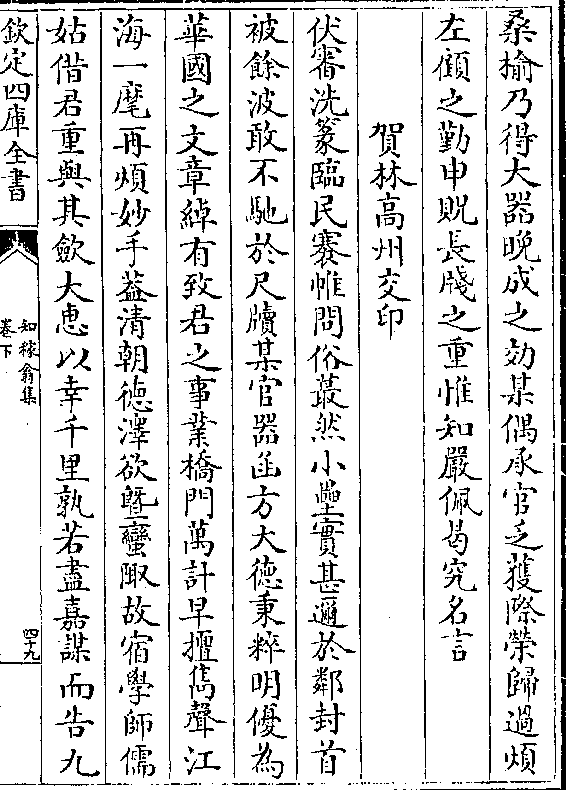 桑榆乃得大器晚成之効某偶承官乏獲際榮歸過煩
左顧之勤申貺長牋之重惟知嚴佩曷究名言
賀林高州交印
伏審洗篆臨民褰帷問俗蕞然小壘實甚邇於鄰封首
被餘波敢不馳於尺牘某官器函方大德秉粹明優為
華國之文章綽有致君之事業橋門萬計早擅雋聲江
海一麾再煩妙手葢清朝德澤欲曁蠻陬故宿學師儒
姑借君重與其斂大惠以幸千里孰若盡嘉謀而告九
欽定四庫全書
知稼翁集
卷下
四十九